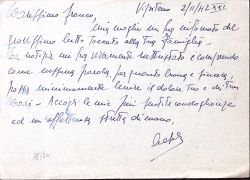 Vipiteno 2/11/42 XXI
Carissimo Franco,
mia moglie mi ha informato del
gravissimo lutto toccato alla tua famiglia.
La notizia mi ha vivamente rattristato e comprendo
come nessuna parola, per quanto buona e sincera,
possa minimamente lenire il dolore tuo e dei tuoi
cari. Accogli le mie più sentite condoglianze
ed un affettuosa stretta di mano.